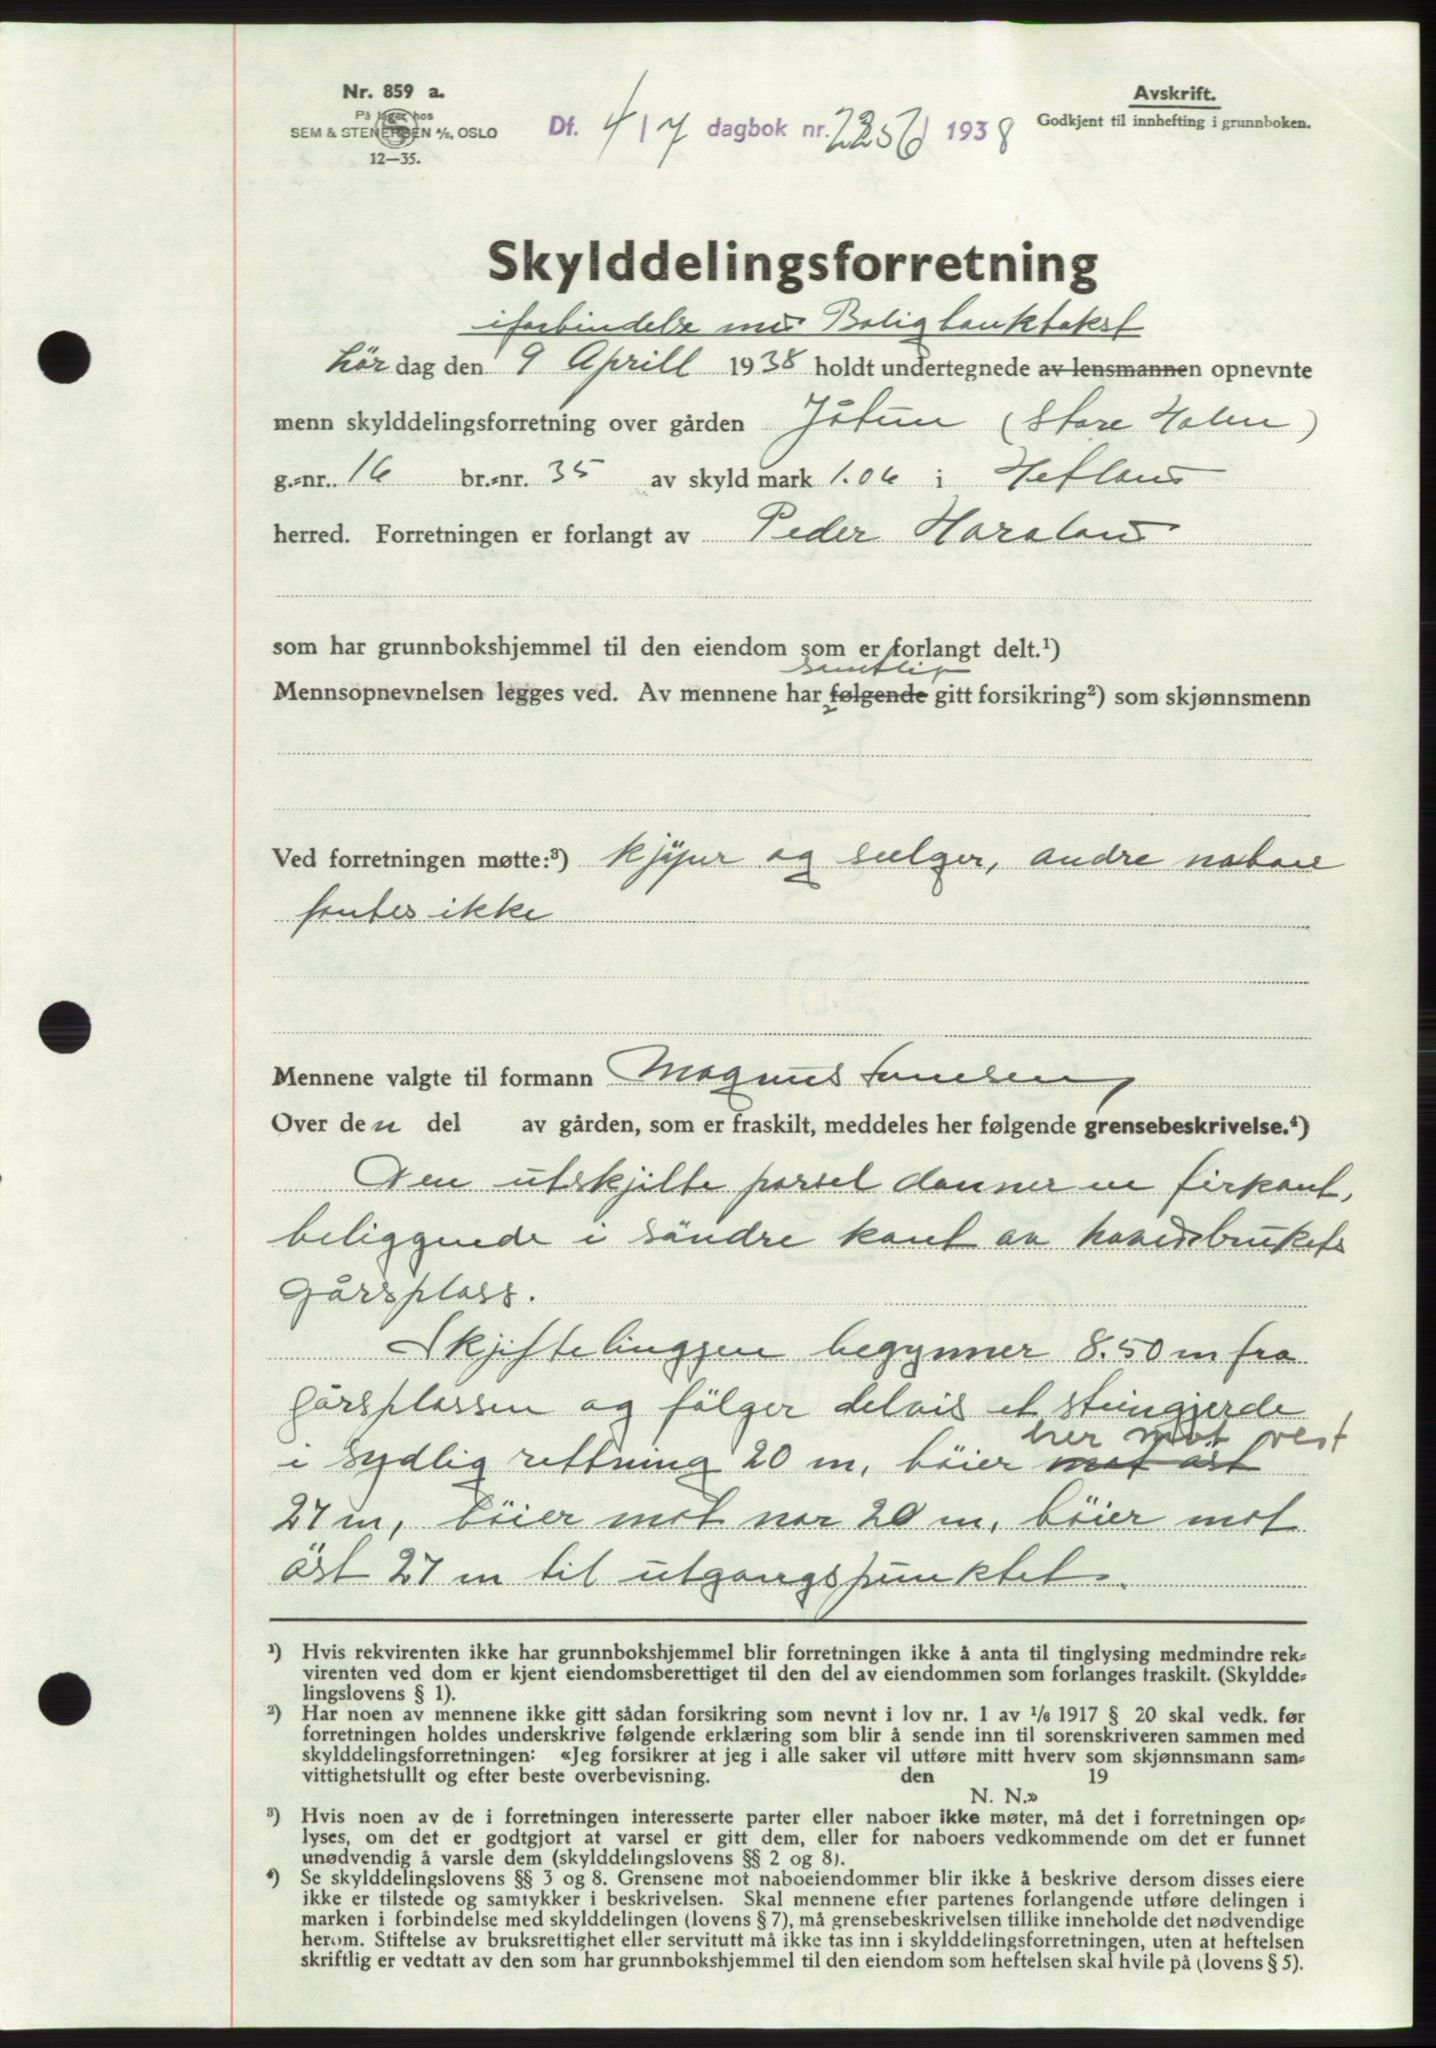 Nr. 859 a.
På lager hos
SEM & STENERSEN A/S, OSLO
12—35.
Df. 4/7 dagbok nr. 2256/1938
Avskrift.
Godkjent til innhefting i grunnboken.
Skylddelingsforretning
iforbindelse med Boligbanktakst
Lör dag den 9 Aprill 1938 holdt undertegnede av lensmannen opnevnte
menn skylddelingsforretning over gården Jåtun (Store Holm)
g.=nr.. 16 br.=nr. 35 av skyld mark 1.06 i Hetland
herred. Forretningen er forlangt av Peder Haraland
som har grunnbokshjemmel til den eiendom som er forlangt delt.¹)
samtlige
Mennsopnevnelsen legges ved. Av mennene har følgende gitt forsikring²) som skjønnsmenn
Ved forretningen møtte:³) kjöper og selger, andre naboer
fantes ikke
Mennene valgte til formann Magnus
Over den del av gården, som er fraskilt, meddeles her følgende grensebeskrivelse.⁴)
Den utskjilte parsel danner en firkant,
beliggende i söndre kant av hovedbrukets
gårsplass.
Skjiftelinggen begynner 8.50 m fra
gårsplassen og fölger delvis et steingjerde
her mot vest
i sydlig rettning 20 m, böier mot öst
27 m, böier mot nor 20 m, böier mot
öst 27 m til utgangspunktet.
¹) Hvis rekvirenten ikke har grunnbokshjemmel blir forretningen ikke å anta til tinglysing medmindre rek=
virenten ved dom er kjent eiendomsberettiget til den del av eiendommen som forlanges fraskilt. (Skyldde=
lingslovens § 1).
²) Har noen av mennene ikke gitt sådan forsikring som nevnt i lov nr. 1 av 1/6 1917 § 20 skal vedk. før
forretningen holdes underskrive følgende erklæring som blir å sende inn til sorenskriveren sammen med
skylddelingsforretningen: «Jeg forsikrer at jeg i alle saker vil utføre mitt hverv som skjønnsmann sam=
vittighetsfullt og efter beste overbevisning. den 19
N. N.»
³) Hvis noen av de i forretningen interesserte parter eller naboer ikke møter, må det i forretningen op=
lyses, om det er godtgjort at varsel er gitt dem, eller for naboers vedkommende om det er funnet
unødvendig å varsle dem (skylddelingslovens §§ 2 og 8).
⁴) Se skylddelingslovens §§ 3 og 8. Grensene mot naboeiendommer blir ikke å beskrive dersom disses eiere
ikke er tilstede og samtykker i beskrivelsen. Skal mennene efter partenes forlangende utføre delingen i
marken i forbindelse med skylddelingen (lovens § 7), må grensebeskrivelsen tillike inneholde det nødvendige
herom. Stiftelse av bruksrettighet eller servitutt må ikke tas inn i skylddelingsforretningen, uten at heftelsen
skriftlig er vedtatt av den som har grunnbokshjemmel til den eiendom som heftelsen skal hvile på (lovens § 5).